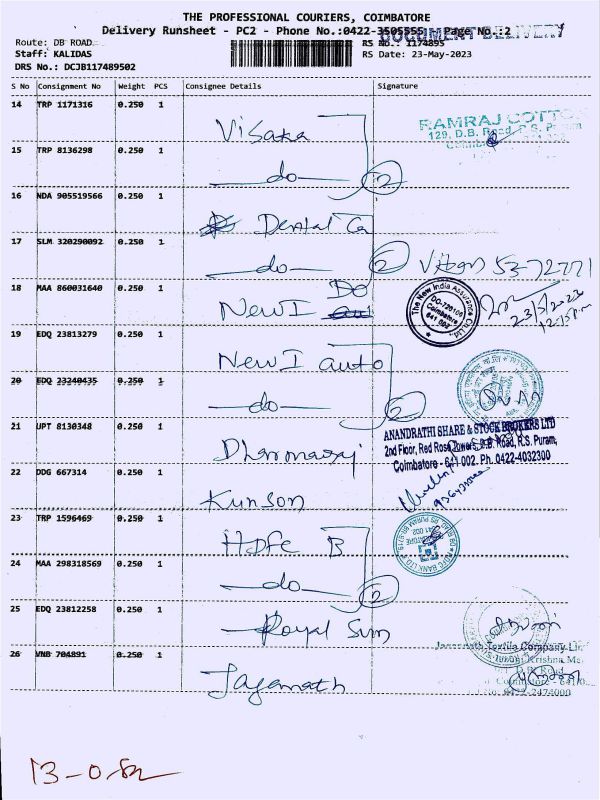 THE PROFESSIONAL COURIERS, COIMBATORE
Delivery Runsheet - PC2 - Phone No.:0422-3505555 Page No.:2
DOCUMENT DELIVERY
Route: DB ROAD
RS No.: 1174895
Staff: KALIDAS
RS Date: 23-May-2023
DRS No.: DCJB117489502
S No Consignment No Weight PCS Consignee Details Signature
14 TRP 1171316 0.250 1
Visaka
RAMRAJ COTTON
129, D.B. Road, R.S. Puram
15 TRP 8136298 0.250 1
do 2
16 NDA 905519566 0.250 1
Dental Ca
17 SLM 320290092 0.250 1
do 2
18 MAA 860031640 0.250 1
New I DO
The New India Assurance Co. Ltd.
DO-720106
Coimbatore
641 002
23/5/2023
12:15pm
19 EDQ 23813279 0.250 1
New I auto
20 EDQ 23240435 0.250 1
do 2
21 UPT 8130348 0.250 1
Dharmaraj
ANANDRATHI SHARE & STOCK BROKERS LTD
2nd Floor, Red Rose Towers, D.B. Road, R.S. Puram,
Coimbatore - 641 002. Ph. 0422-4032300
22 DDG 667314 0.250 1
Kunson
23 TRP 1596469 0.250 1
HDFC B
24 MAA 298318569 0.250 1
do 2
25 EDQ 23812258 0.250 1
Royal Sun
26 VNB 704891 0.250 1
Jagannath
Jagannath Textile Company Ltd
Krishna
0422-2474000
13-0.82